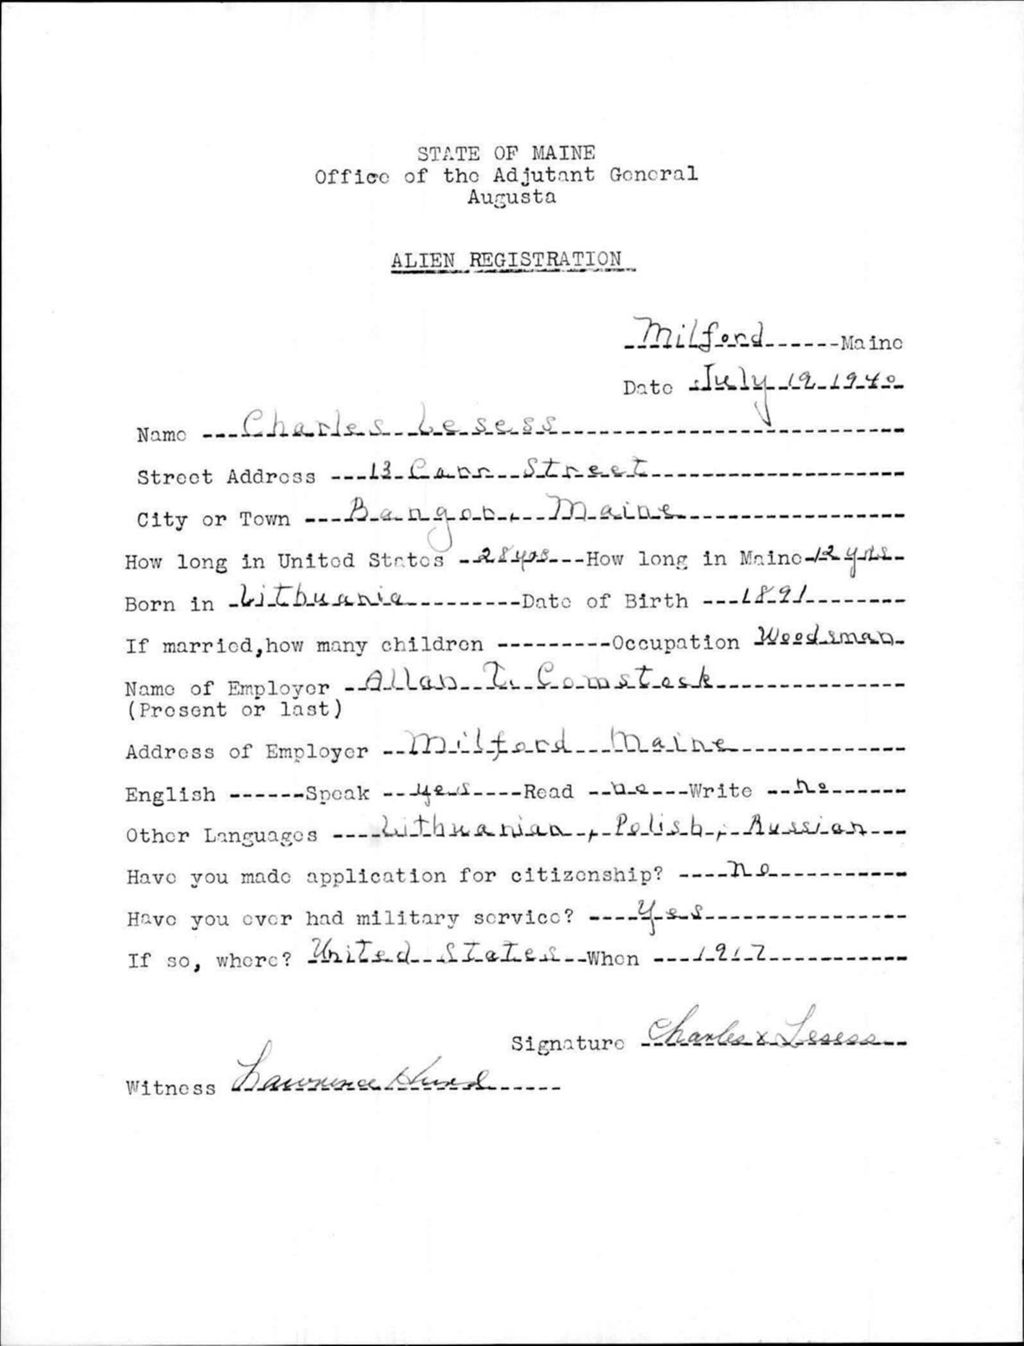 STATE OF MAINE
Office of the Adjutant General
Augusta
ALIEN REGISTRATION
Milford Maine
Date July 19 1940
Name Charles Lesess
Street Address 13 Carr Street
City or Town Bangor, Maine
How long in United States 28 yrs How long in Maine 12 yrs
Born in Lithuania Date of Birth 1891
If married, how many children Occupation Woodsman
Name of Employer Allan T. Comstock
(Present or last)
Address of Employer Milford Maine
English Speak yes Read no Write no
Other Languages Lithuanian, Polish, Russian
Have you made application for citizenship? no
Have you ever had military service? Yes
If so, where? United States When 1917
Signature Charles x Lesess
Witness Lawrence Hurd